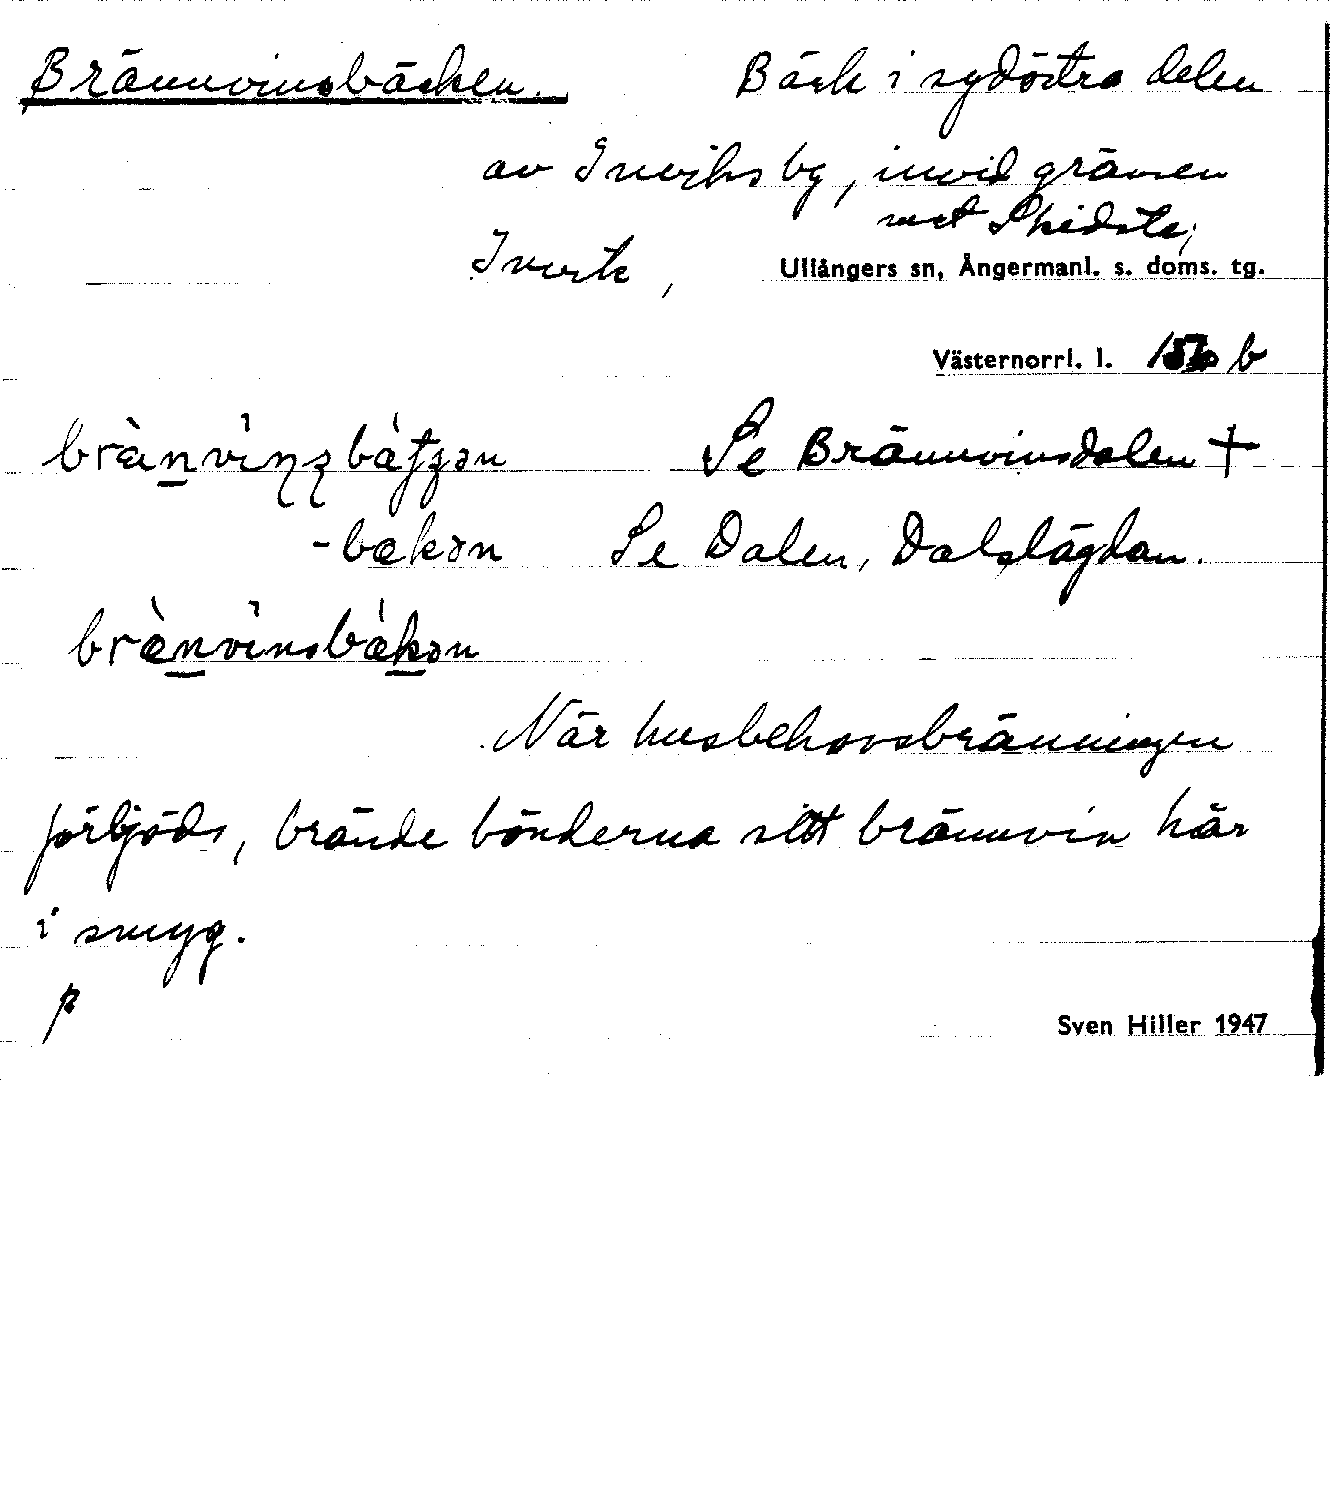 Brännvinsbäcken. Bäck i sydöstra delen
av Inviks by, invid gränsen
mot Skidsta,
Invik, Ullångers sn, Ångermanl. s. doms. tg.
Västernorrl. l. b
Se Brännvinsdalen +
-bækən Se Dalen, Dalslägdan.
brænvinsbækən
När husbehovsbränningen
förbjöds, brände bönderna sitt brännvin här
i smyg.
p
Sven Hiller 1947